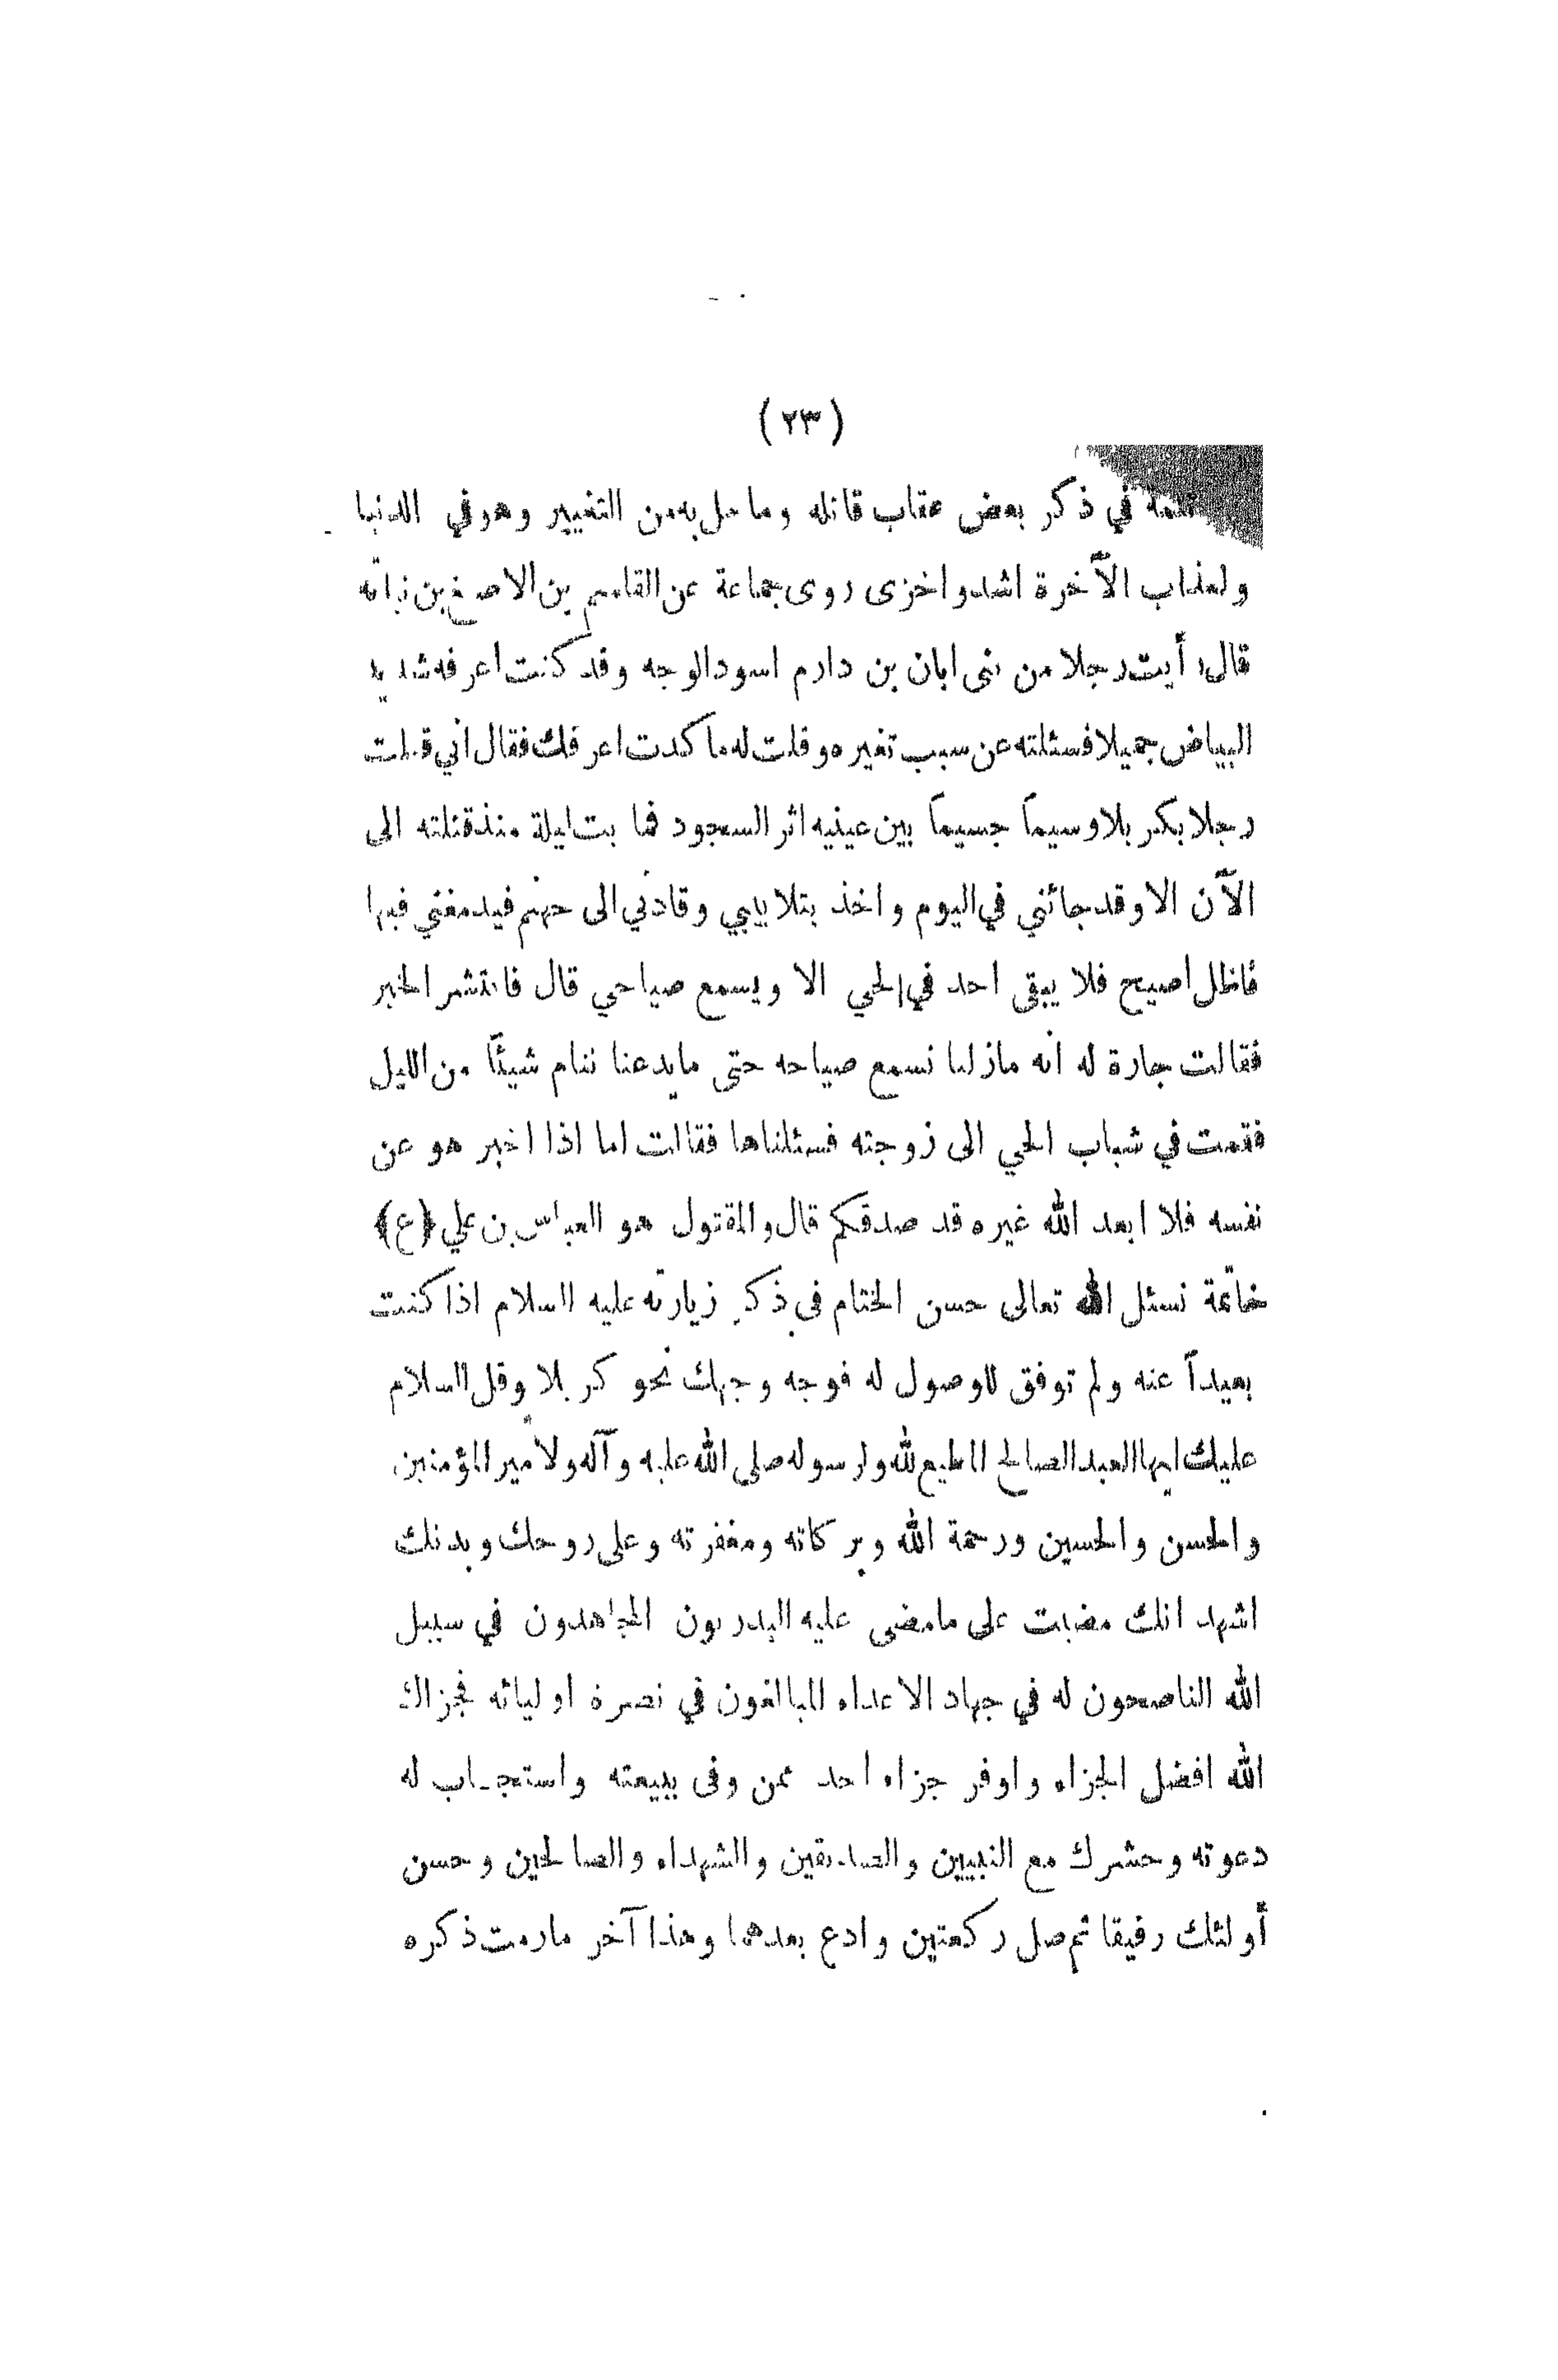 (٢٣)
في ذكر بعض عقاب قاتله وما حل به من التغيير وهو في الدنيا
ولعذاب الآخرة اشد واخزى روى جماعة عن القاسم بن الاصبغ بن نباته
قال رأيت رجلا من بني ابان بن دارم اسود الوجه وقد كنت اعرفه شديد
البياض جميلا فسئلته عن سبب تغيره وقلت له ما كدت اعرفك فقال اني قتلت
رجلا بكربلا وسيماً جسيماً بين عينيه اثر السجود فما بت ليلة منذ قتلته الى
الآن الا وقد جائني في اليوم واخذ بتلابيبي وقادني الى جهنم فيدفعني فيها
فاظل اصيح فلا يبقى احد في الحي الا ويسمع صياحي قال فانتشر الخبر
فقالت جارة له انه مازلنا نسمع صياحه حتى مايدعنا ننام شيئاً من الليل
فقمت في شباب الحي الى زوجته فسئلناها فقالت اما اذا اخبر هو عن
نفسه فلا ابعد الله غيره قد صدقكم قال والمقتول هو العباس بن علي (ع)
خاتمة نسئل الله تعالى حسن الختام في ذكر زيارته عليه السلام اذا كنت
بعيداً عنه ولم توفق للوصول له فوجه وجهك نحو كربلا وقل السلام
عليك ايها العبد الصالح المطيع لله ولرسوله صلى الله عليه وآله ولأمير المؤمنين
والحسن والحسين ورحمة الله وبركاته ومغفرته وعلى روحك وبدنك
اشهد انك مضيت على مامضى عليه البدريون المجاهدون في سبيل
الله الناصحون له في جهاد الاعداء المبالغون في نصرة اوليائه فجزاك
الله افضل الجزاء واوفر جزاء احد ممن وفى ببيعته واستجاب له
دعوته وحشرك مع النبيين والصديقين والشهداء والصالحين وحسن
أولئك رفيقا ثم صل ركعتين وادع بعدهما وهذا آخر مارمت ذكره